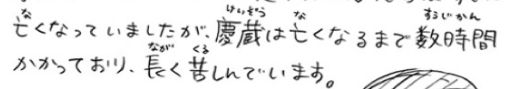 亡くなっていましたが、慶蔵は亡くなるまで数時間
かかっており、長く苦しんでいます。